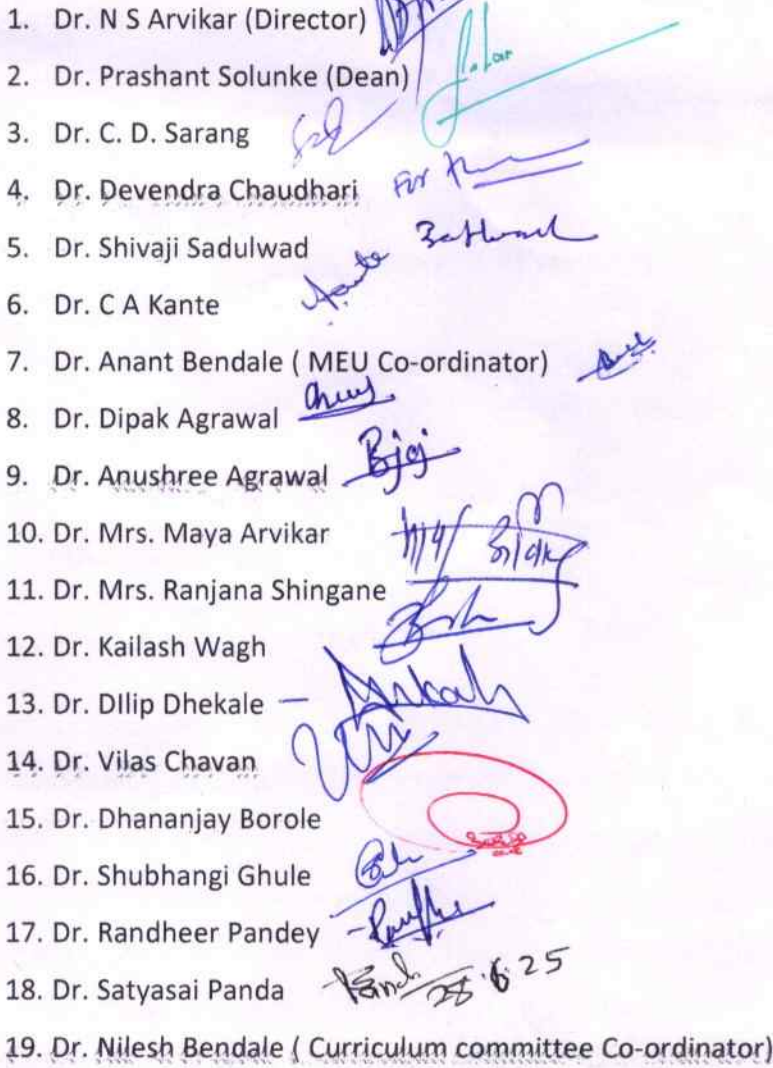 1. Dr. N S Arvikar (Director)
2. Dr. Prashant Solunke (Dean)
3. Dr. C. D. Sarang
4. Dr. Devendra Chaudhari For
5. Dr. Shivaji Sadulwad
6. Dr. C A Kante Kante
7. Dr. Anant Bendale ( MEU Co-ordinator)
8. Dr. Dipak Agrawal
9. Dr. Anushree Agrawal
10. Dr. Mrs. Maya Arvikar
11. Dr. Mrs. Ranjana Shingane
12. Dr. Kailash Wagh
13. Dr. DIlip Dhekale –
14. Dr. Vilas Chavan
15. Dr. Dhananjay Borole
16. Dr. Shubhangi Ghule
17. Dr. Randheer Pandey
18. Dr. Satyasai Panda 28.6.25
19. Dr. Nilesh Bendale ( Curriculum committee Co-ordinator)